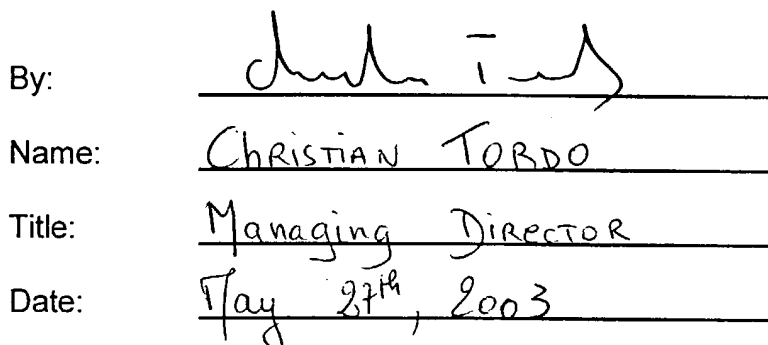 By:
Name: Christian Tordo
Title: Managing Director
Date: May 27th, 2003